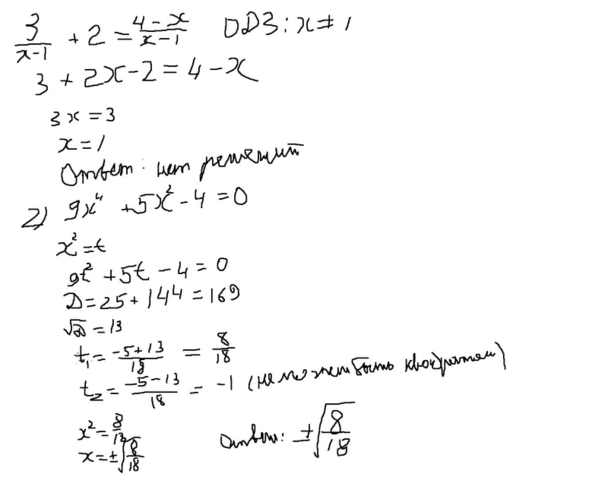 3/(x-1) + 2 = (4-x)/(x-1) ОДЗ: x ≠ 1
3 + 2x - 2 = 4 - x
3x = 3
x = 1
Ответ: нет решений
2) 9x⁴ + 5x² - 4 = 0
x² = t
9t² + 5t - 4 = 0
D = 25 + 144 = 169
√D = 13
t₁ = (-5+13)/18 = 8/18
t₂ = (-5-13)/18 = -1 (не может быть квадратом)
x² = 8/18
x = ±√(8/18) Ответ: ±√(8/18)